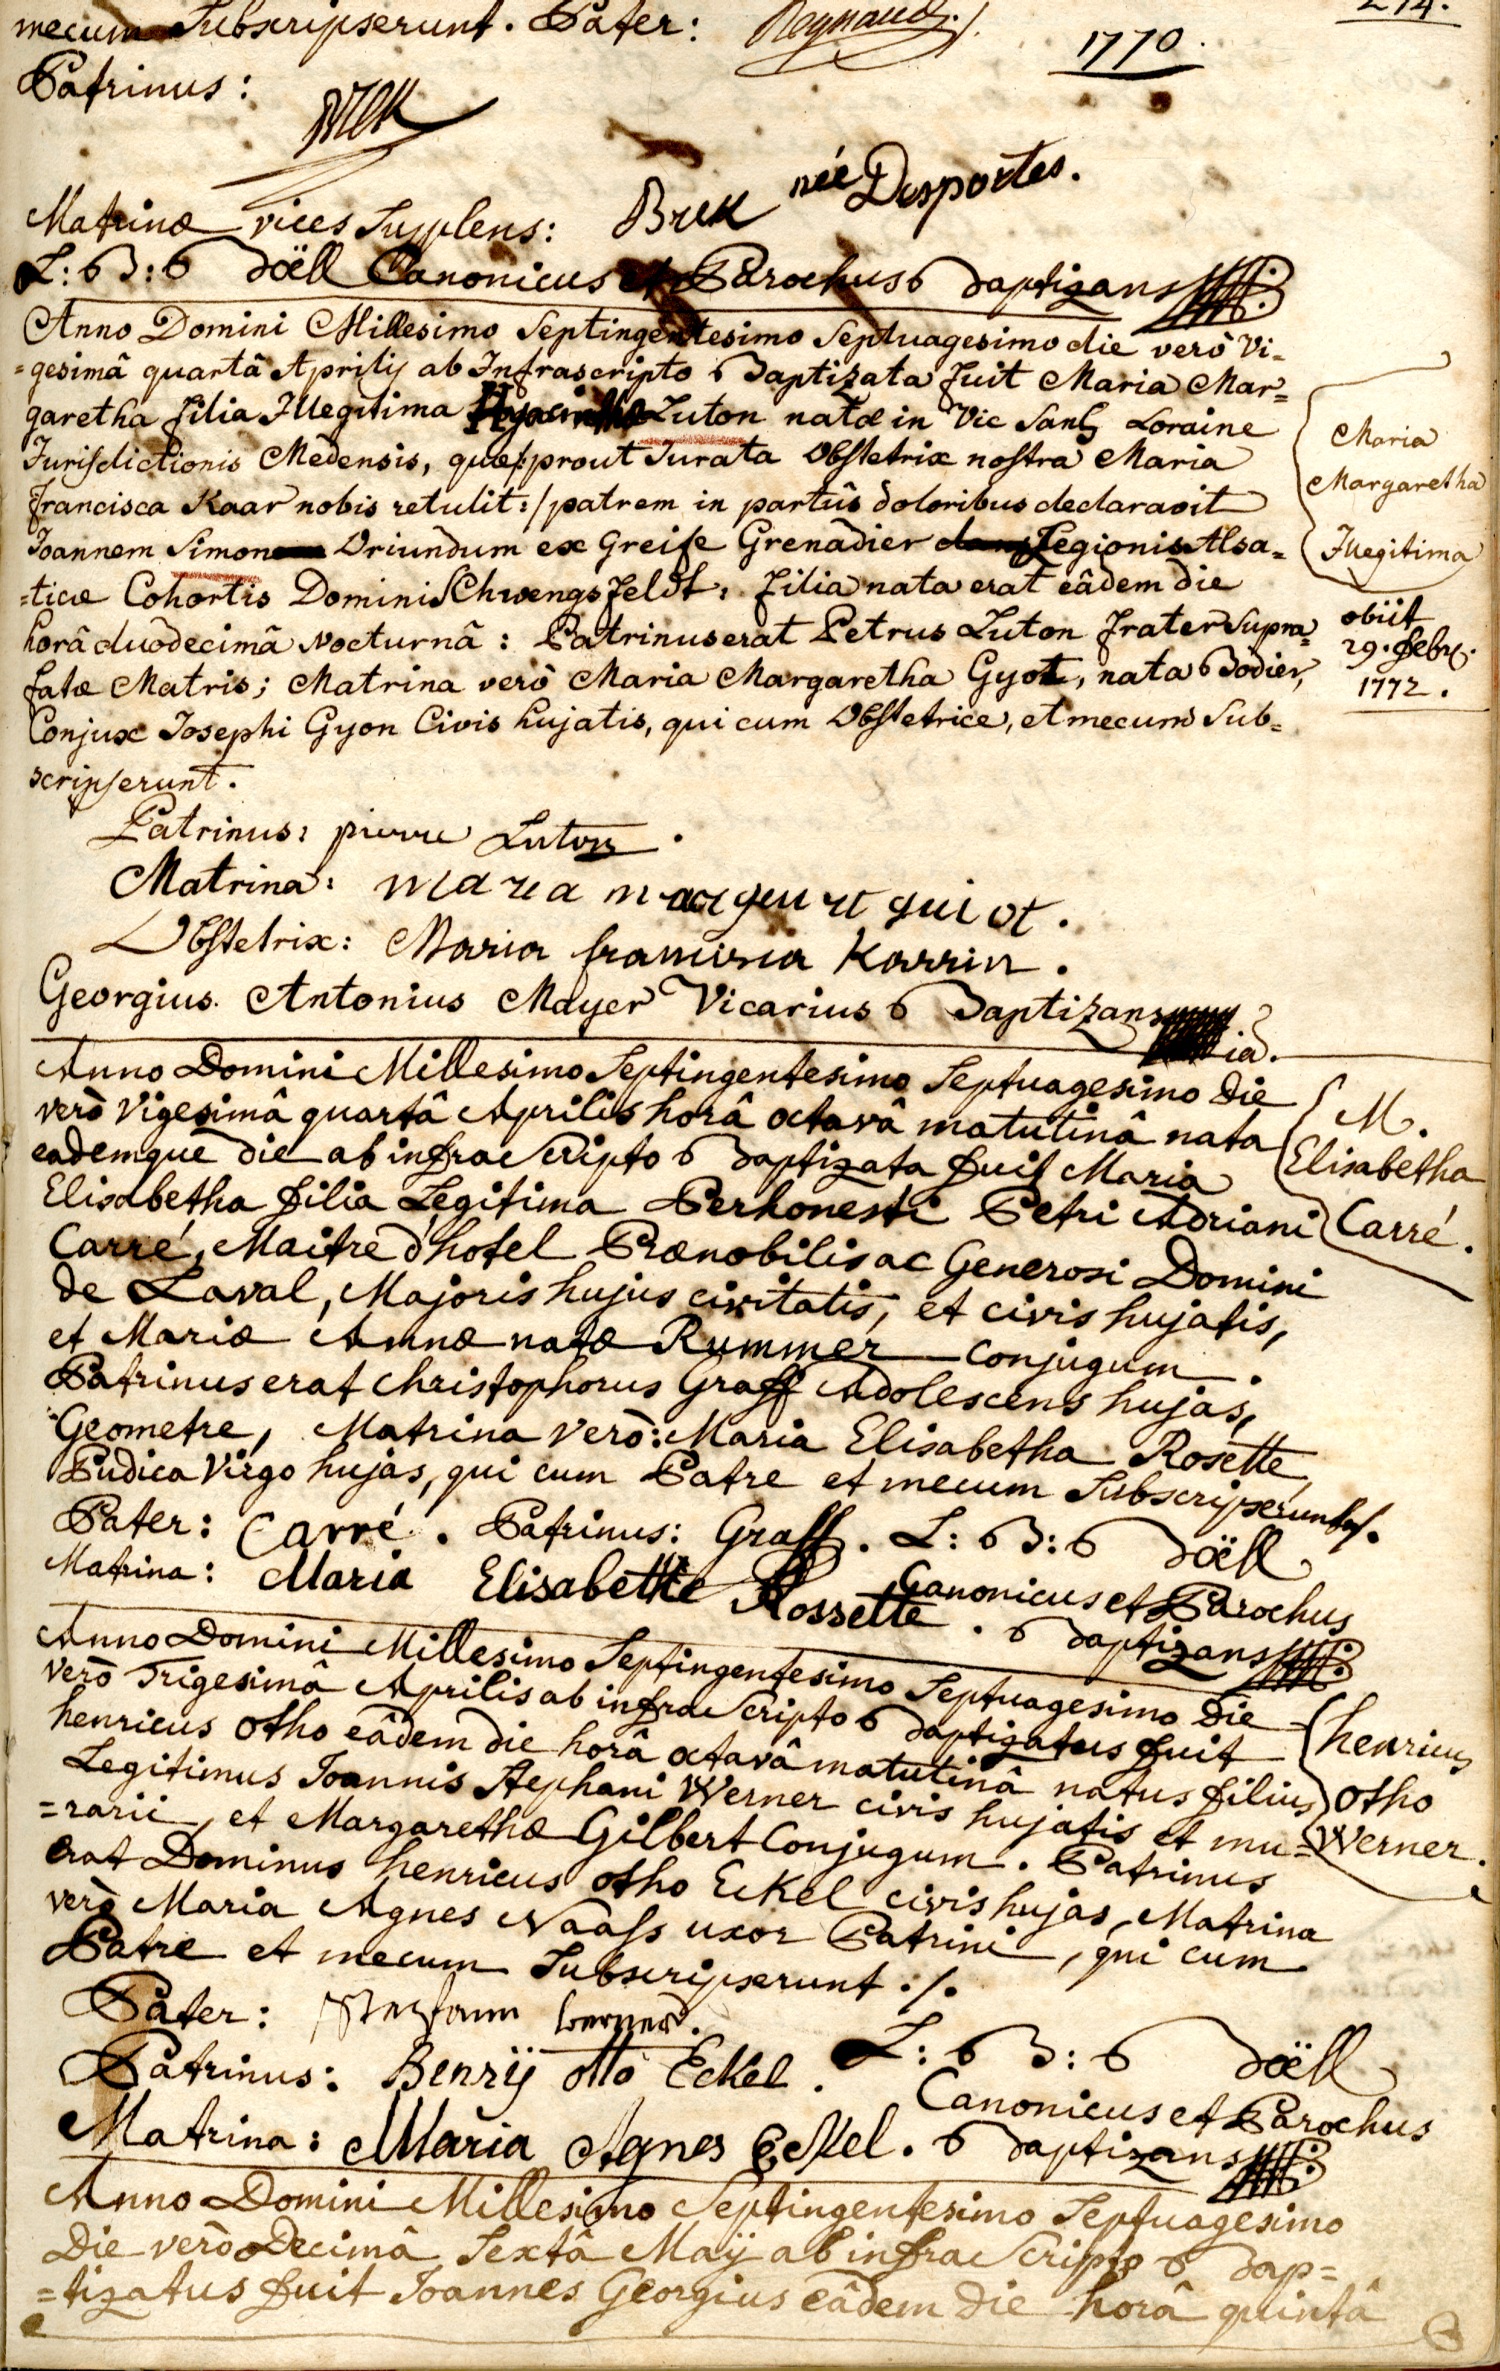 mecum Subscripserunt. Pater: Reynaud./.
274.
1770.
Patrinus: Brek
Matrinæ vices Supplens: Brek née Desportes.
L: B: Boëll Canonicus et Parochus Baptizans
Anno Domini Millesimo Septingentesimo Septuagesimo die verò Vi-
=gesimâ quartâ Aprilis ab Infrascripto Baptizata fuit Maria Mar=
garetha filia Illegitima Luton natæ in Vic Sanß Loraine
Jurisdictionis Medensis, quæ/:prout Jurata Obstetrix nostra Maria
Francisca Kaar nobis retulit:/ patrem in partûs doloribus declaravit
Joannem Simon Oriundum ex Greise Grenadier Legionis Alsa=
=ticæ Cohortis Domini Schwengsfeldt: filia nata erat eâdem die
horâ duodecimâ Nocturnâ: Patrinus erat Petrus Luton frater Supra=
fatæ Matris; Matrina verò Maria Margaretha Gyot, nata Bodier,
Conjux Josephi Gyon Civis hujatis, qui cum Obstetrice, et mecum Sub=
scripserunt.
Maria
Margaretha
Illegitima
obiit
29. Febr.
1772.
Patrinus: pierre Luton.
Matrina: maria margurit guiot.
Obstetrix: Maria francisca Karrin.
Georgius Antonius Mayer Vicarius Baptizans
Anno Domini Millesimo Septingentesimo Septuagesimo Die
verò Vigesimâ quartâ Aprilis horâ octavâ matutinâ nata
eademque die ab infra Scripto Baptizata fuit Maria
Elisabetha filia Legitima Perhonesti Petri Adriani
Carré, Maitre d'hotel Prænobilis ac Generosi Domini
de Laval, Majoris hujus civitatis, et civis hujatis,
et Mariæ Annæ natæ Rummer conjugum.
Patrinus erat Christophorus Graff Adolescens hujas,
Geometre, Matrina verò: Maria Elisabetha Rosette
Pudica Virgo hujas, qui cum Patre et mecum Subscripserunt./.
M.
Elisabetha
Carré.
Pater: Carré. Patrinus: Graff. L: B: Boëll
Matrina: Maria Elisabette Rossette. Canonicus et Parochus
Baptizans
Anno Domini Millesimo Septingentesimo Septuagesimo Die
verò Trigesimâ Aprilis ab infra Scripto Baptizatus fuit
henricus Otho eâdem die horâ octavâ matutinâ natus filius
Legitimus Joannis Stephani Werner civis hujatis et mu=
=rarii, et Margarethæ Gilbert Conjugum. Patrinus
erat Dominus henricus otho Eckel civis hujas, Matrina
verò Maria Agnes Naass uxor Patrini, qui cum
Patre et mecum Subscripserunt./.
henricus
otho
Werner.
Pater: Stefann Werner.
Patrinus: Henrÿ otto Eckel. L: B: Boëll
Canonicus et Parochus
Matrina: Maria Agnes Eckel. Baptizans
Anno Domini Millesimo Septingentesimo Septuagesimo
Die verò Decimâ Sextâ Maÿ ab infra Scripto Bap=
=tizatus fuit Joannes Georgius eâdem die horâ quintâ